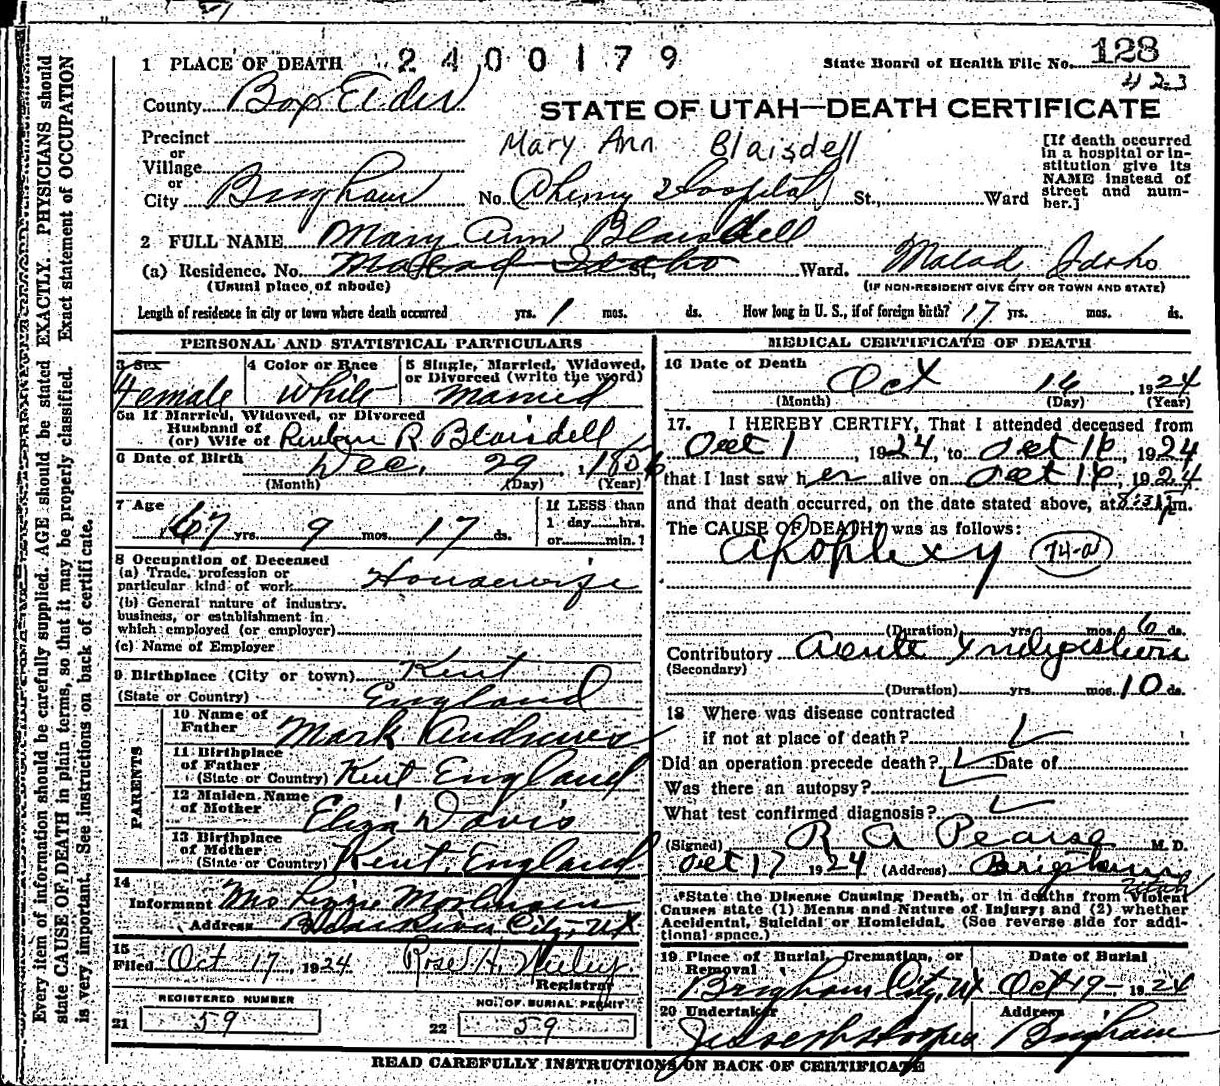 2400179
1 PLACE OF DEATH
State Board of Health File No. 128
423
County Box Elder
STATE OF UTAH—DEATH CERTIFICATE
Precinct
or
Village
or
City Brigham
Mary Ann Blaisdell
No. Hospital St., Ward
[If death occurred
in a hospital or in-
stitution give its
NAME instead of
street and num-
ber.]
2 FULL NAME Mary Ann Blaisdell
(a) Residence. No. Malad Idaho St. Ward. Malad, Idaho
(Usual place of abode)
(IF NON-RESIDENT GIVE CITY OR TOWN AND STATE)
Length of residence in city or town where death occurred yrs. 1 mos. ds. How long in U. S., if of foreign birth? 17 yrs. mos. ds.
PERSONAL AND STATISTICAL PARTICULARS
3 Sex
Female
4 Color or Race
White
5 Single, Married, Widowed,
or Divorced (write the word)
Married
5a If Married, Widowed, or Divorced
Husband of
(or) Wife of R Blaisdell
6 Date of Birth Dec. 29, 1
(Month) (Day) (Year)
7 Age
67 yrs. 9 mos. 17 ds.
If LESS than
1 day hrs.
or min.?
8 Occupation of Deceased
(a) Trade, profession or
particular kind of work Housewife
(b) General nature of industry,
business, or establishment in
which employed (or employer)
(c) Name of Employer
9 Birthplace (City or town) Kent
(State or Country) England
PARENTS
10 Name of
Father Mark Andrews
11 Birthplace
of Father
(State or Country) Kent England
12 Maiden Name
of Mother Eliza Davis
13 Birthplace
of Mother
(State or Country) Kent, England
14
Informant Mrs Lizzie
Address City, Ut
15
Filed Oct 17, 1924 Rose H.
Registrar
REGISTERED NUMBER
21 59
NO. OF BURIAL PERMIT
22 59
MEDICAL CERTIFICATE OF DEATH
16 Date of Death
Oct 16, 1924
(Month) (Day) (Year)
17. I HEREBY CERTIFY, That I attended deceased from
Oct 1, 1924, to Oct 16, 1924
that I last saw her alive on Oct 16, 1924
and that death occurred, on the date stated above, at m.
The CAUSE OF DEATH was as follows:
Apoplexy 74-a
(Duration) yrs. mos. 6 ds.
Contributory Acute Indigestion
(Secondary)
(Duration) yrs. mos. 10 ds.
18 Where was disease contracted
if not at place of death?
Did an operation precede death? Date of
Was there an autopsy?
What test confirmed diagnosis?
(Signed) R A Pearse M. D.
Oct 17 1924 (Address) Brigham
Utah
*State the Disease Causing Death, or in deaths from Violent
Causes state (1) Means and Nature of Injury; and (2) whether
Accidental, Suicidal or Homicidal. (See reverse side for addi-
tional space.)
19 Place of Burial, Cremation, or
Removal
Brigham City, Ut
Date of Burial
Oct 19 1924
20 Undertaker
Address
Brigham
READ CAREFULLY INSTRUCTIONS ON BACK OF CERTIFICATE
Every item of information should be carefully supplied. AGE should be stated EXACTLY. PHYSICIANS should
state CAUSE OF DEATH in plain terms, so that it may be properly classified. Exact statement of OCCUPATION
is very important. See instructions on back of certificate.